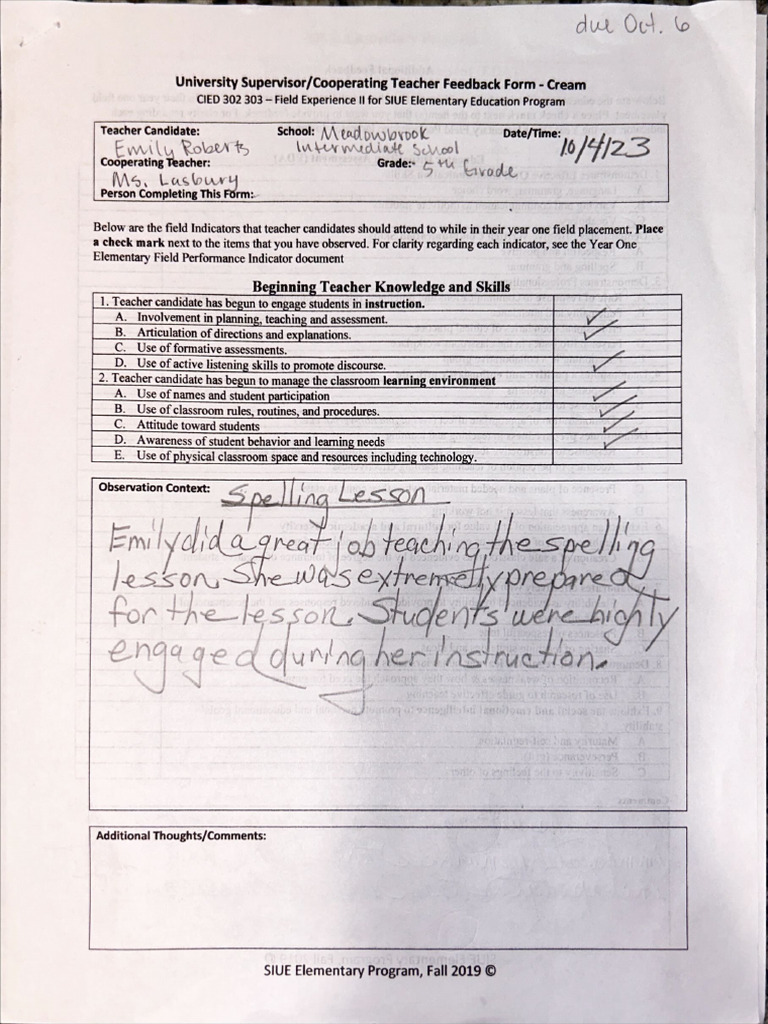 due Oct. 6
University Supervisor/Cooperating Teacher Feedback Form - Cream
CIED 302 303 – Field Experience II for SIUE Elementary Education Program
Teacher Candidate: School: Meadowbrook Date/Time:
Emily Roberts Intermediate School 10/4/23
Cooperating Teacher: Grade: 5th Grade
Ms. Lasbury
Person Completing This Form:
Below are the field Indicators that teacher candidates should attend to while in their year one field placement. Place
a check mark next to the items that you have observed. For clarity regarding each indicator, see the Year One
Elementary Field Performance Indicator document
Beginning Teacher Knowledge and Skills
1. Teacher candidate has begun to engage students in instruction.
A. Involvement in planning, teaching and assessment. ✓
B. Articulation of directions and explanations. ✓
C. Use of formative assessments.
D. Use of active listening skills to promote discourse. ✓
2. Teacher candidate has begun to manage the classroom learning environment
A. Use of names and student participation ✓
B. Use of classroom rules, routines, and procedures. ✓
C. Attitude toward students ✓
D. Awareness of student behavior and learning needs ✓
E. Use of physical classroom space and resources including technology.
Observation Context: Spelling Lesson
Emily did a great job teaching the spelling
lesson. She was extremely prepared
for the lesson. Students were highly
engaged during her instruction.
Additional Thoughts/Comments:
SIUE Elementary Program, Fall 2019 ©